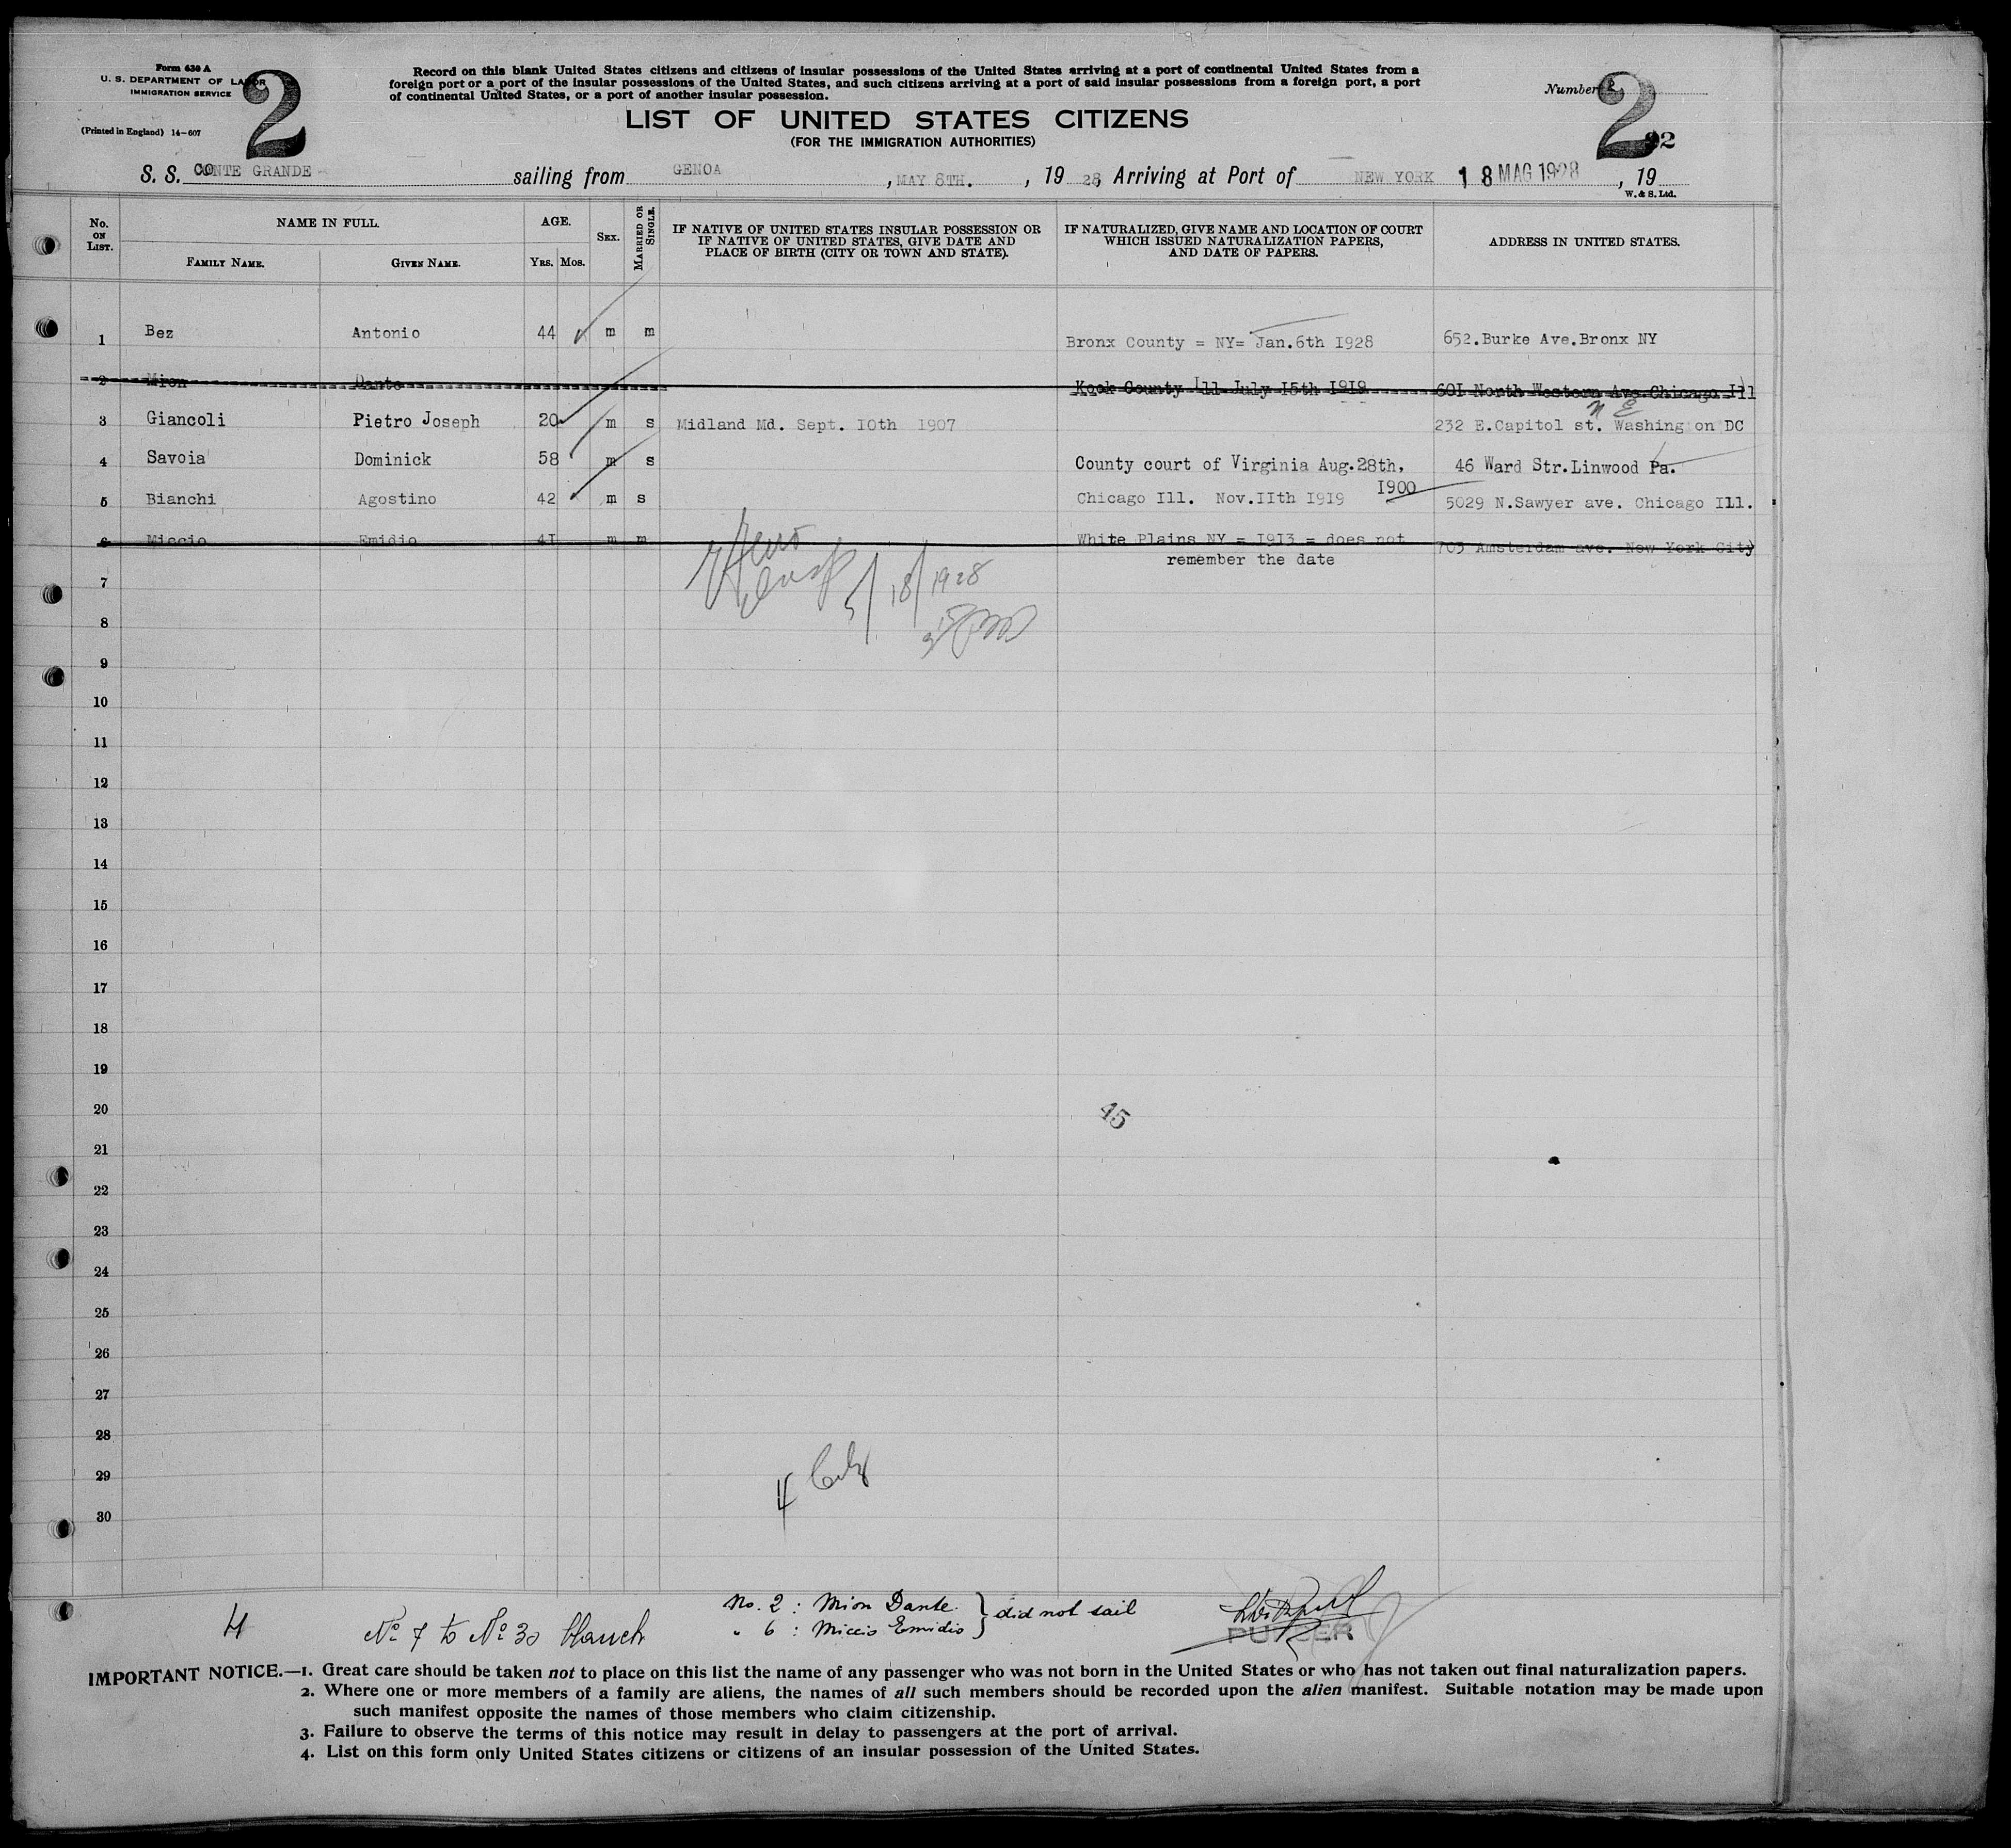 Form 630 A
U. S. DEPARTMENT OF LABOR
IMMIGRATION SERVICE
(Printed in England) 14—607
2
Record on this blank United States citizens and citizens of insular possessions of the United States arriving at a port of continental United States from a
foreign port or a port of the insular possessions of the United States, and such citizens arriving at a port of said insular possessions from a foreign port, a port
of continental United States, or a port of another insular possession.
Number
2
LIST OF UNITED STATES CITIZENS
(FOR THE IMMIGRATION AUTHORITIES)
S. S. CONTE GRANDE sailing from GENOA, MAY 8TH., 1928, Arriving at Port of NEW YORK 18 MAG 1928, 19
W. & S. Ltd.
No. ON LIST. NAME IN FULL. AGE. SEX. MARRIED OR SINGLE. IF NATIVE OF UNITED STATES INSULAR POSSESSION OR IF NATIVE OF UNITED STATES, GIVE DATE AND PLACE OF BIRTH (CITY OR TOWN AND STATE). IF NATURALIZED, GIVE NAME AND LOCATION OF COURT WHICH ISSUED NATURALIZATION PAPERS, AND DATE OF PAPERS. ADDRESS IN UNITED STATES.
FAMILY NAME. GIVEN NAME. YRS. MOS.
1 Bez Antonio 44 m m Bronx County = NY= Jan.6th I928 652.Burke Ave.Bronx NY
2 Mion Dante Kook County Ill July I5th I9I9 60I North Western Ave.Chicago Ill
N E
3 Giancoli Pietro Joseph 20 m s Midland Md. Sept. I0th I907 232 E.Capitol st. Washing on DC
4 Savoia Dominick 58 m s County court of Virginia Aug.28th, I900 46 Ward Str.Linwood Pa.
5 Bianchi Agostino 42 m s Chicago Ill. Nov.IIth I9I9 5029 N.Sawyer ave. Chicago Ill.
6 Miccio Emidio 4I m m White Plains NY = I9I3 = does not 703 Amsterdam ave. New York City
remember the date
7
5/18/1928
8
9
10
11
12
13
14
15
16
17
18
19
20
45
21
22
23
24
25
26
27
28
29
4
30
4
No 7 to No 30 blanck
No. 2 : Mion Dante
" 6 : Miccio Emidio } did not sail
PURSER
IMPORTANT NOTICE.—1. Great care should be taken not to place on this list the name of any passenger who was not born in the United States or who has not taken out final naturalization papers.
2. Where one or more members of a family are aliens, the names of all such members should be recorded upon the alien manifest. Suitable notation may be made upon
such manifest opposite the names of those members who claim citizenship.
3. Failure to observe the terms of this notice may result in delay to passengers at the port of arrival.
4. List on this form only United States citizens or citizens of an insular possession of the United States.